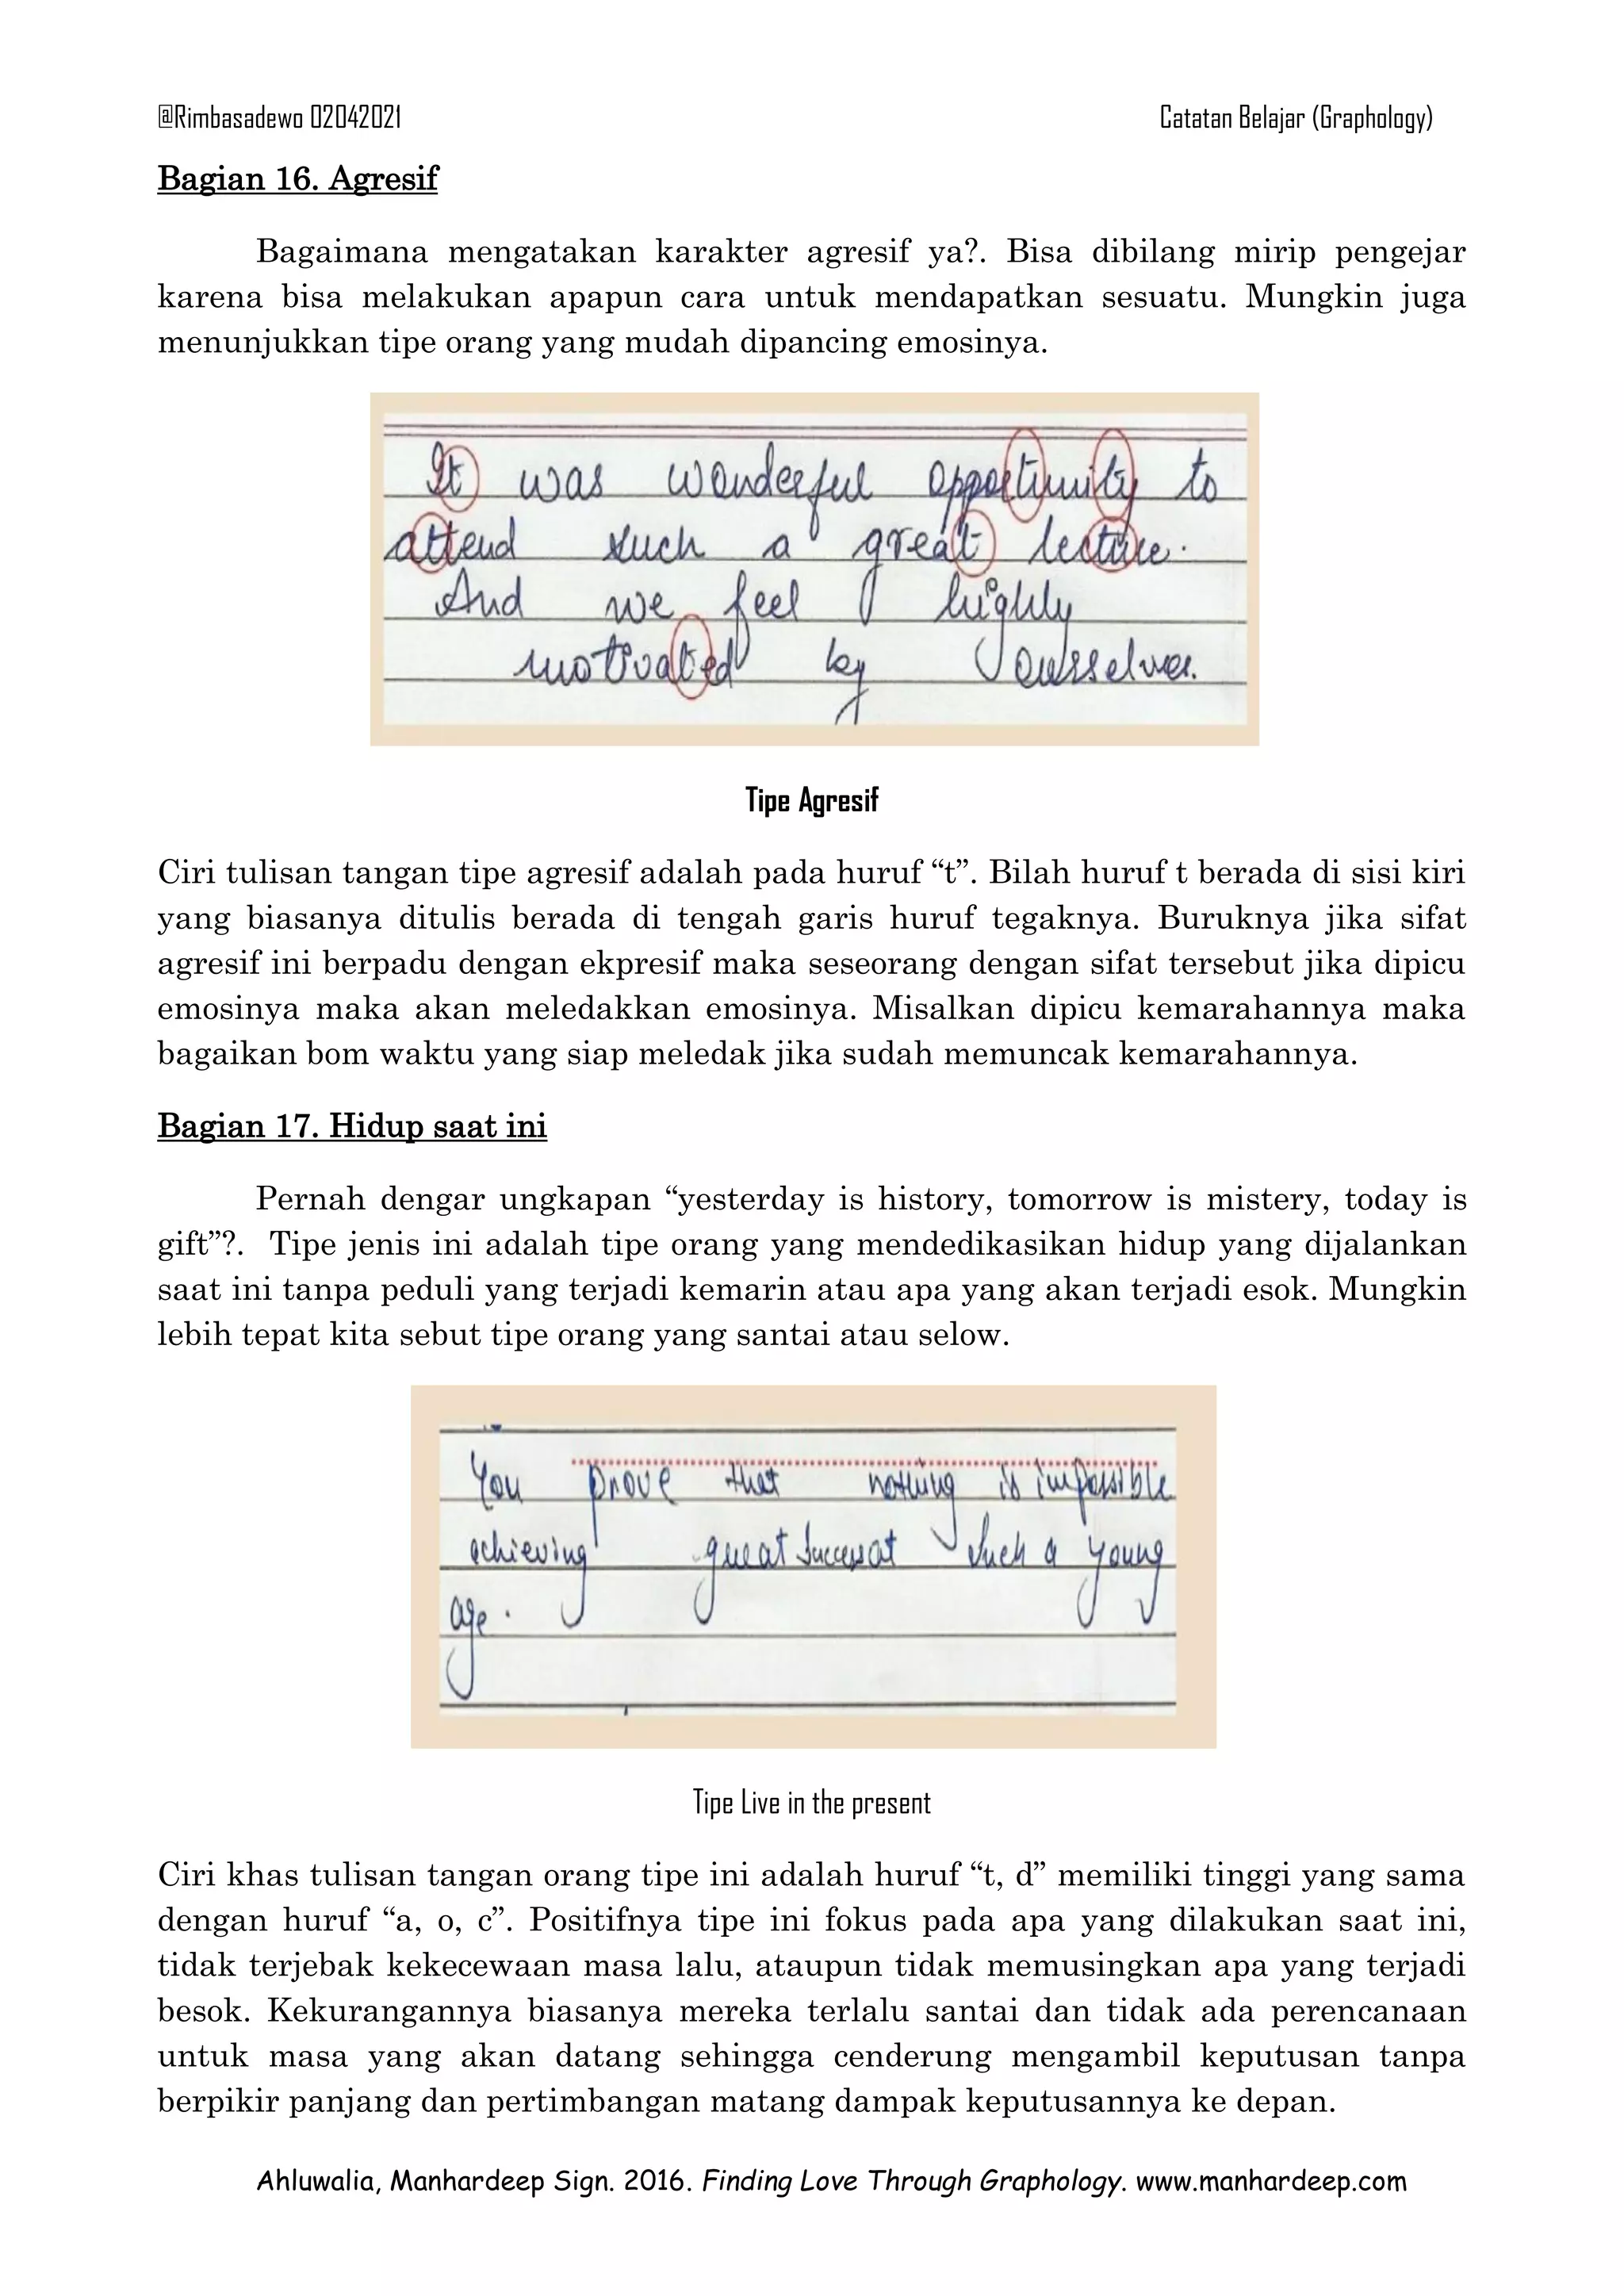 @Rimbasadewo 02042021 Catatan Belajar (Graphology)
Bagian 16. Agresif
Bagaimana mengatakan karakter agresif ya?. Bisa dibilang mirip pengejar
karena bisa melakukan apapun cara untuk mendapatkan sesuatu. Mungkin juga
menunjukkan tipe orang yang mudah dipancing emosinya.
It was wonderful opportunity to
attend such a great lecture.
And we feel highly
motivated by ourselves.
Tipe Agresif
Ciri tulisan tangan tipe agresif adalah pada huruf “t”. Bilah huruf t berada di sisi kiri
yang biasanya ditulis berada di tengah garis huruf tegaknya. Buruknya jika sifat
agresif ini berpadu dengan ekpresif maka seseorang dengan sifat tersebut jika dipicu
emosinya maka akan meledakkan emosinya. Misalkan dipicu kemarahannya maka
bagaikan bom waktu yang siap meledak jika sudah memuncak kemarahannya.
Bagian 17. Hidup saat ini
Pernah dengar ungkapan “yesterday is history, tomorrow is mistery, today is
gift”?. Tipe jenis ini adalah tipe orang yang mendedikasikan hidup yang dijalankan
saat ini tanpa peduli yang terjadi kemarin atau apa yang akan terjadi esok. Mungkin
lebih tepat kita sebut tipe orang yang santai atau selow.
You prove that nothing is impossible
achieving great success at such a young
age.
Tipe Live in the present
Ciri khas tulisan tangan orang tipe ini adalah huruf “t, d” memiliki tinggi yang sama
dengan huruf “a, o, c”. Positifnya tipe ini fokus pada apa yang dilakukan saat ini,
tidak terjebak kekecewaan masa lalu, ataupun tidak memusingkan apa yang terjadi
besok. Kekurangannya biasanya mereka terlalu santai dan tidak ada perencanaan
untuk masa yang akan datang sehingga cenderung mengambil keputusan tanpa
berpikir panjang dan pertimbangan matang dampak keputusannya ke depan.
Ahluwalia, Manhardeep Sign. 2016. Finding Love Through Graphology. www.manhardeep.com